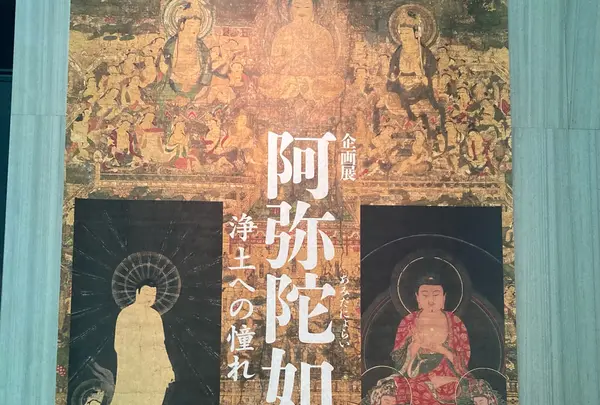 企画展
阿弥陀如
あみだにょらい
浄土への憧れ